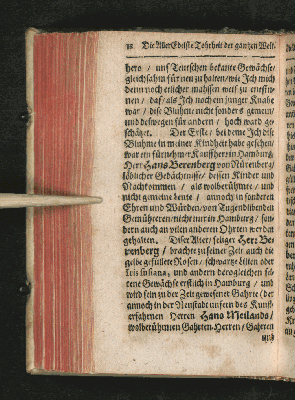 18. Die AllerEdelste Tohrheit der gantzen Welt.
hero / uns Teutschen bekante Gewächse /
gleichsahm für neu zu halten / wie Ich mich
denn noch etlicher mahssen weis zu entsin-
nen / daß / als Ich noch ein junger Knabe
war / dise Bluhme nicht sonders gemein /
und deswegen für andern / hoch ward ge-
schätzet. Der Erste / bei deme Ich diese
Bluhme in meiner Kindheit habe gesehen /
war ein fürnehmer Kunstherr in Hamburg /
Herr Hans Berenberg von Nürenberg /
löblicher Gedächtnisse / dessen Kinder und
Nachkommen / als wolberühmte / und
nicht gemeine Leute / annoch in sonderen
Ehren und Würden / von Tugendliebenden
Gemühtern / nicht nur in Hamburg / son-
dern auch an vilen anderen Ohrten werden
gehalten. Diser Alter / seliger Herr Be-
renberg / brachte zu seiner Zeit auch die
gelbe gefüllete Rosen / schwartze Lilien oder
Iris Susiana, und andern derogleichen sel-
tene Gewächse erstlich in Hamburg / und
wird sein zu der Zeit gewesener Gahrte / der
annoch in der Neustadt unfern des Kunst-
erfahrnen Herren Hans Meilands /
wolberühmten Gahrten-Herren / Gahrten